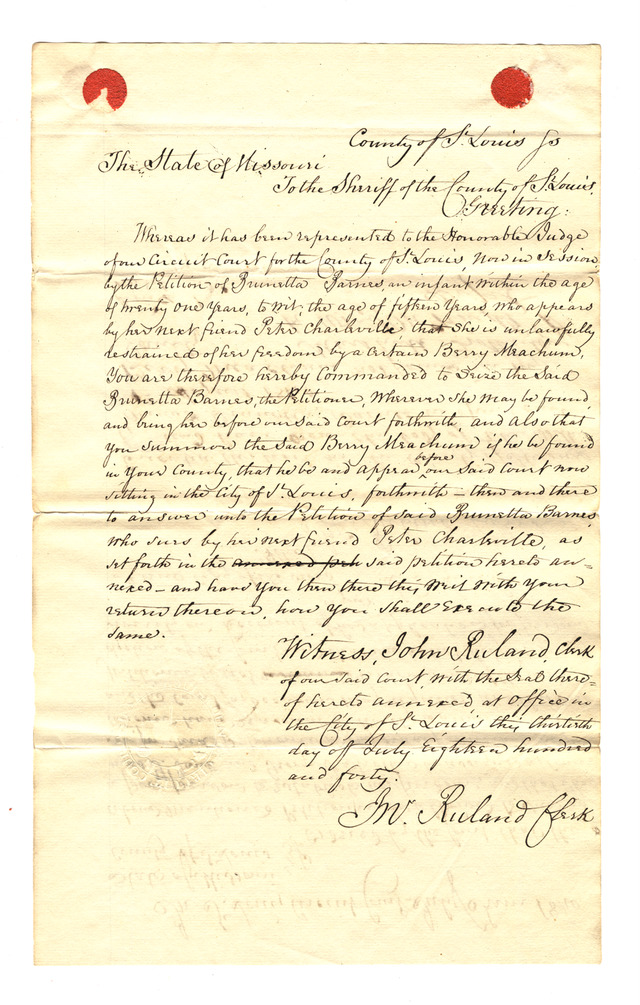 County of St Louis Ss
The State of Missouri
To the Sheriff of the County of St Louis,
Greeting:
Whereas it has been represented to the Honorable Judge
of our Circuit Court for the County of St Louis, Now in Session
by the Petition of Brunetta Barnes, an infant within the age
of twenty one Years, to wit, the age of fifteen Years, who appears
by her next friend Peter Charleville that She is unlawfully
restrained of her freedom by a certain Berry Meachum,
You are therefore hereby Commanded to Seize the Said
Brunetta Barnes, the Petitioner, Wherever She may be found,
and bring her before our said Court forthwith, and also that
you Summon the Said Berry Meachum if he be found
in Your County, that he be and appear before our Said Court now
sitting in the City of St Louis, forthwith – then and there
to answer unto the Petition of said Brunetta Barnes,
who sues by her next friend Peter Charleville, as
set forth in the annexed peti said petition hereto an-
nexed – and have You then there this Writ With Your
return thereon, how You Shall Execute the
same.
Witness, John Ruland, Clerk
of our Said Court, with the Seal there-
of hereto annexed, at Office in
the City of St Louis this thirtieth
day of July Eighteen hundred
and forty.
Jno. Ruland Clerk